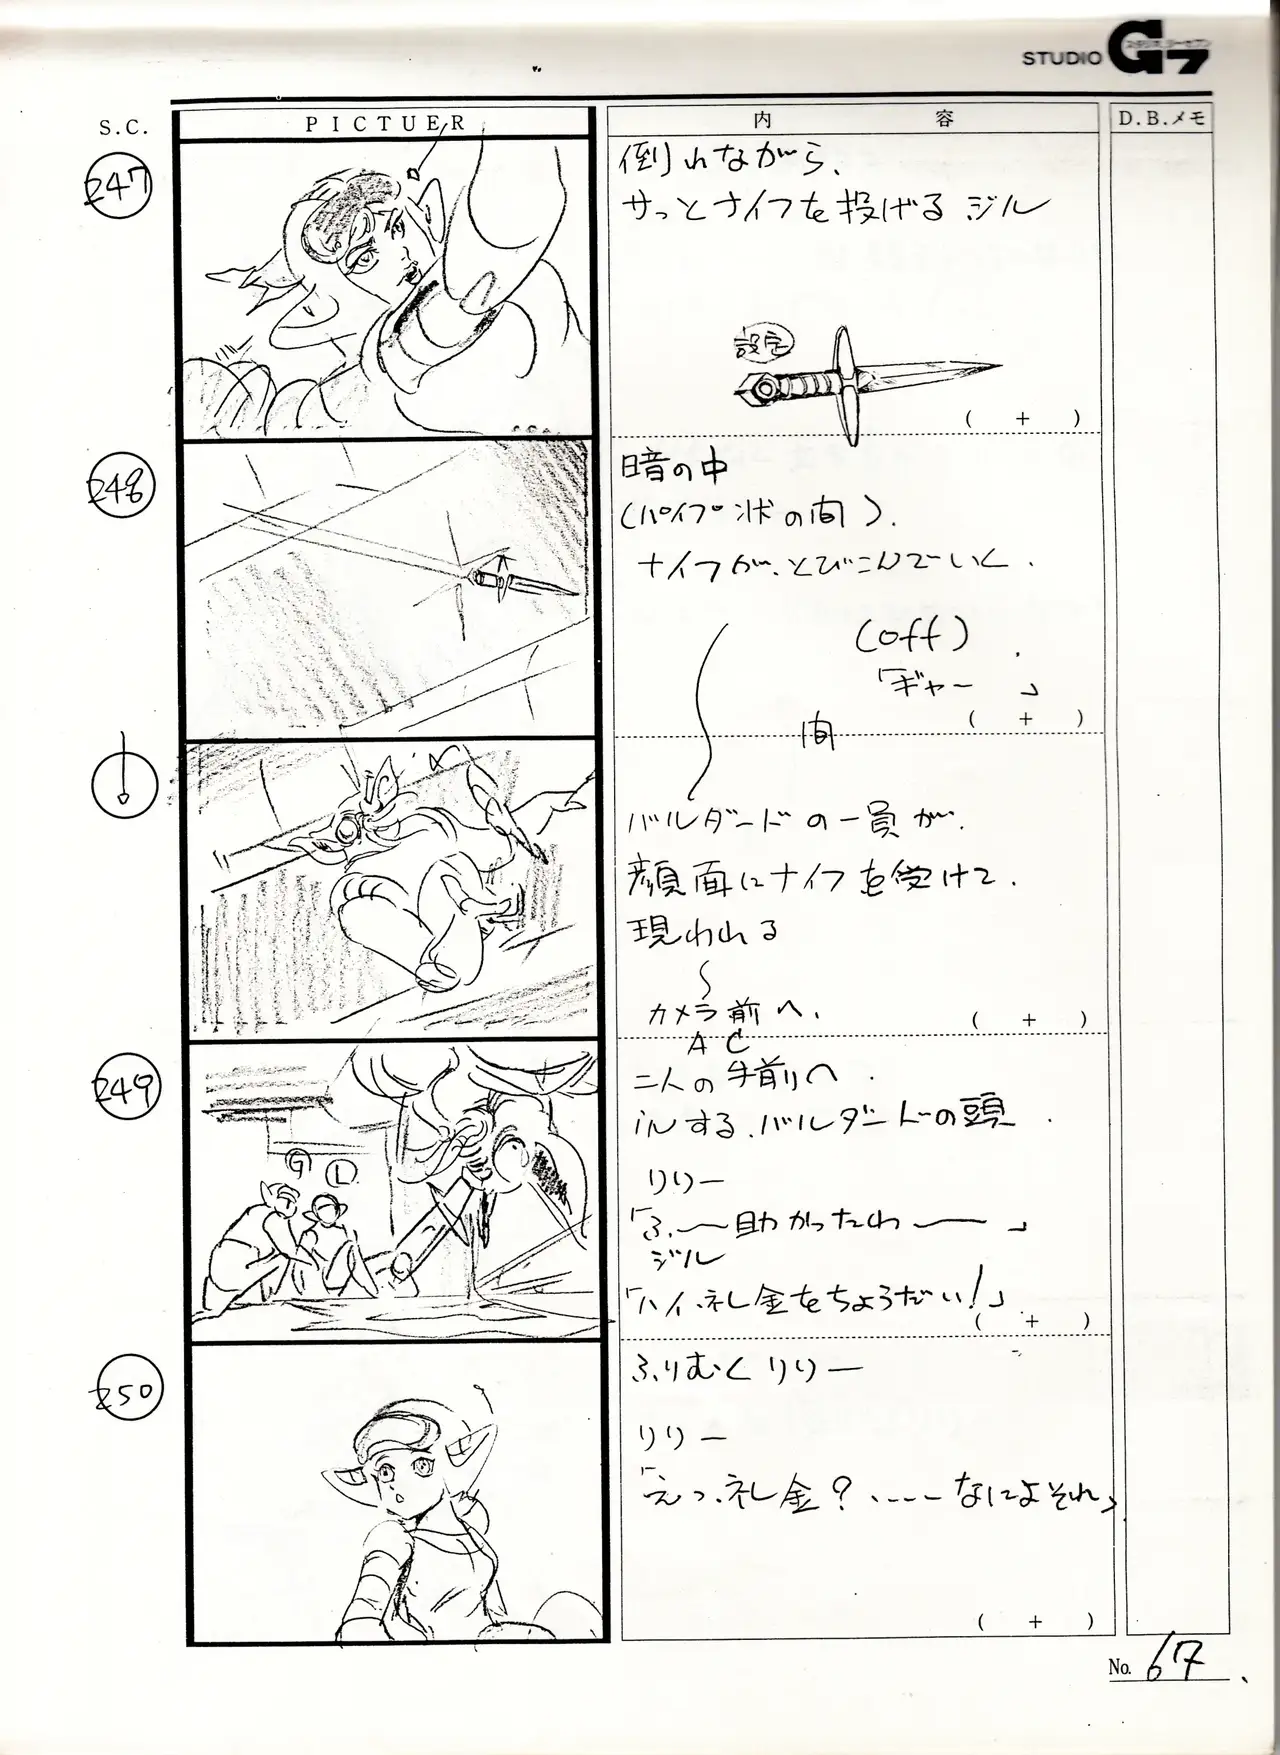 STUDIO G7
スタジオ ジーセブン
S.C.
PICTUER
内 容
D.B.メモ
247
倒れながら、
サッとナイフを投げる ジル
設定
( + )
248
暗の中
(パイプ状の間).
ナイフが、とびこんでいく.
(off)
「ギャー 」
( + )
間
バルダードの一員が、
顔面にナイフを受けて、
現われる
カメラ前へ、
( + )
A C
249
G L
二人の手前へ
inする、バルダードの頭
リリー
「ふ〜助かったわ〜」
ジル
「ハイ、礼金をちょうだい!」
( + )
250
ふりむくリリー
リリー
「えっ、礼金?、---なによそれ」
( + )
No. 67